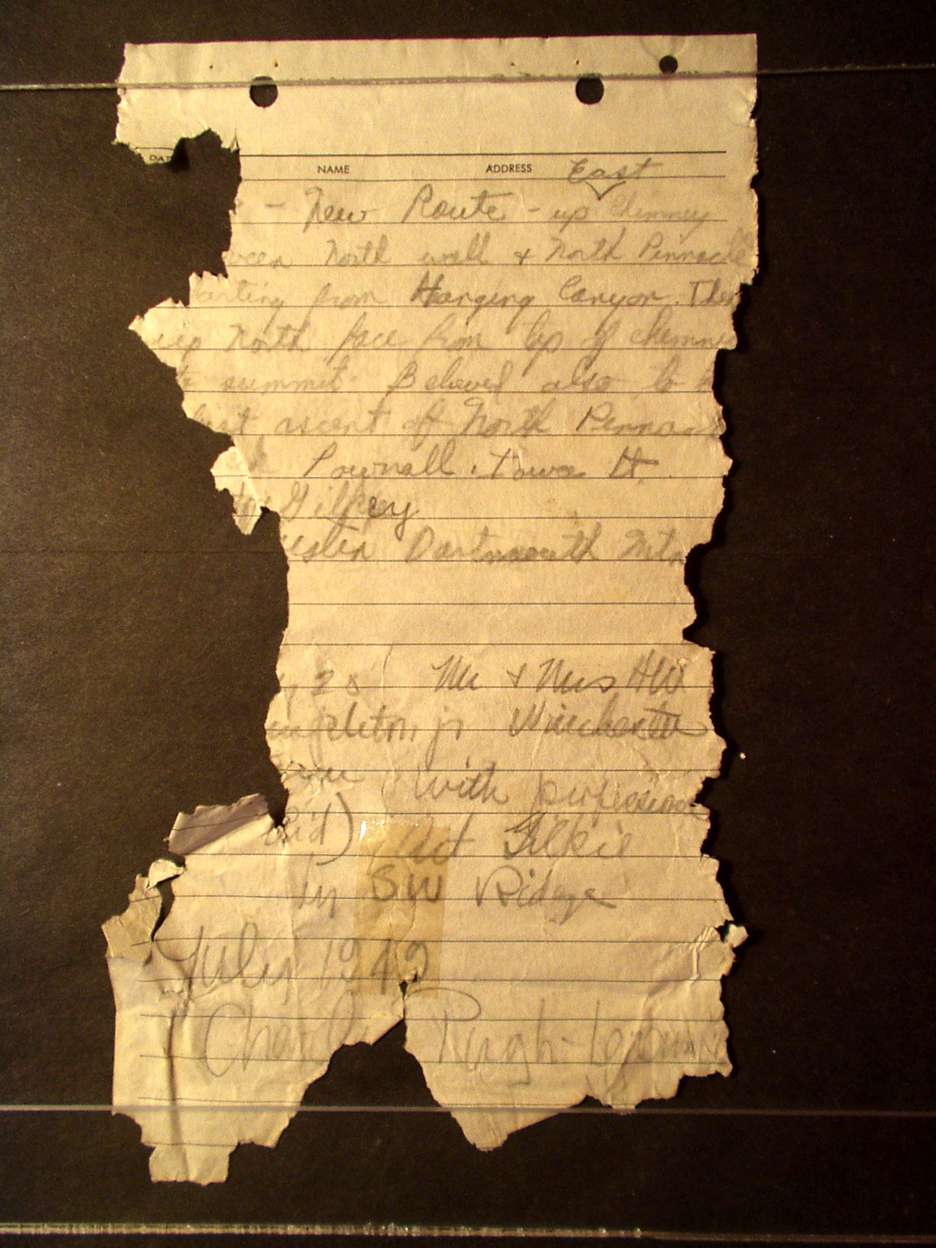 DAT NAME ADDRESS
East
- New Route - up chimney
ween North wall & North Pinnacle
arting from Hanging Canyon. Then
up North face from top of chimne
to summit. Believed also to b
first ascent of North Pinnac
Pownall . Tower It.
Gilkey
Dartmouth Mtn
28 Mr & Mrs HW
ngleton, jr Winchester
with profession
aid) Art Gilkie
by SW Ridge
July 1949
Charlie Pugh-